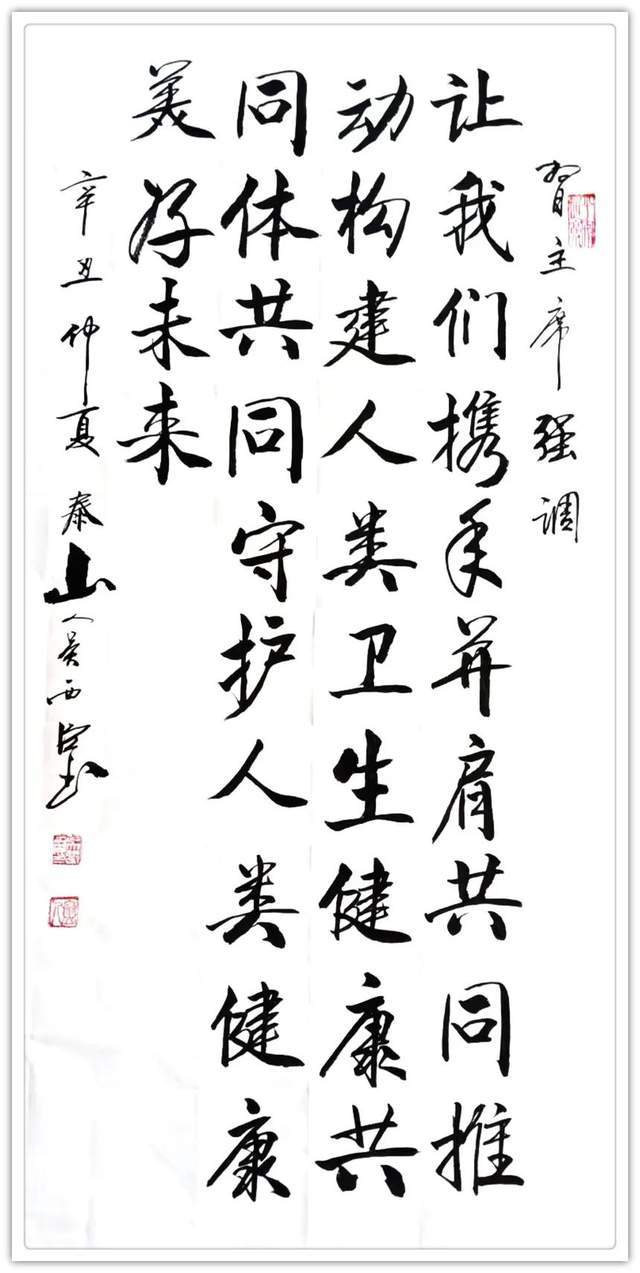 习主席强调
让我们携手并肩共同推
动构建人类卫生健康共
同体共同守护人类健康
美好未来
辛丑仲夏泰山人吴西宝